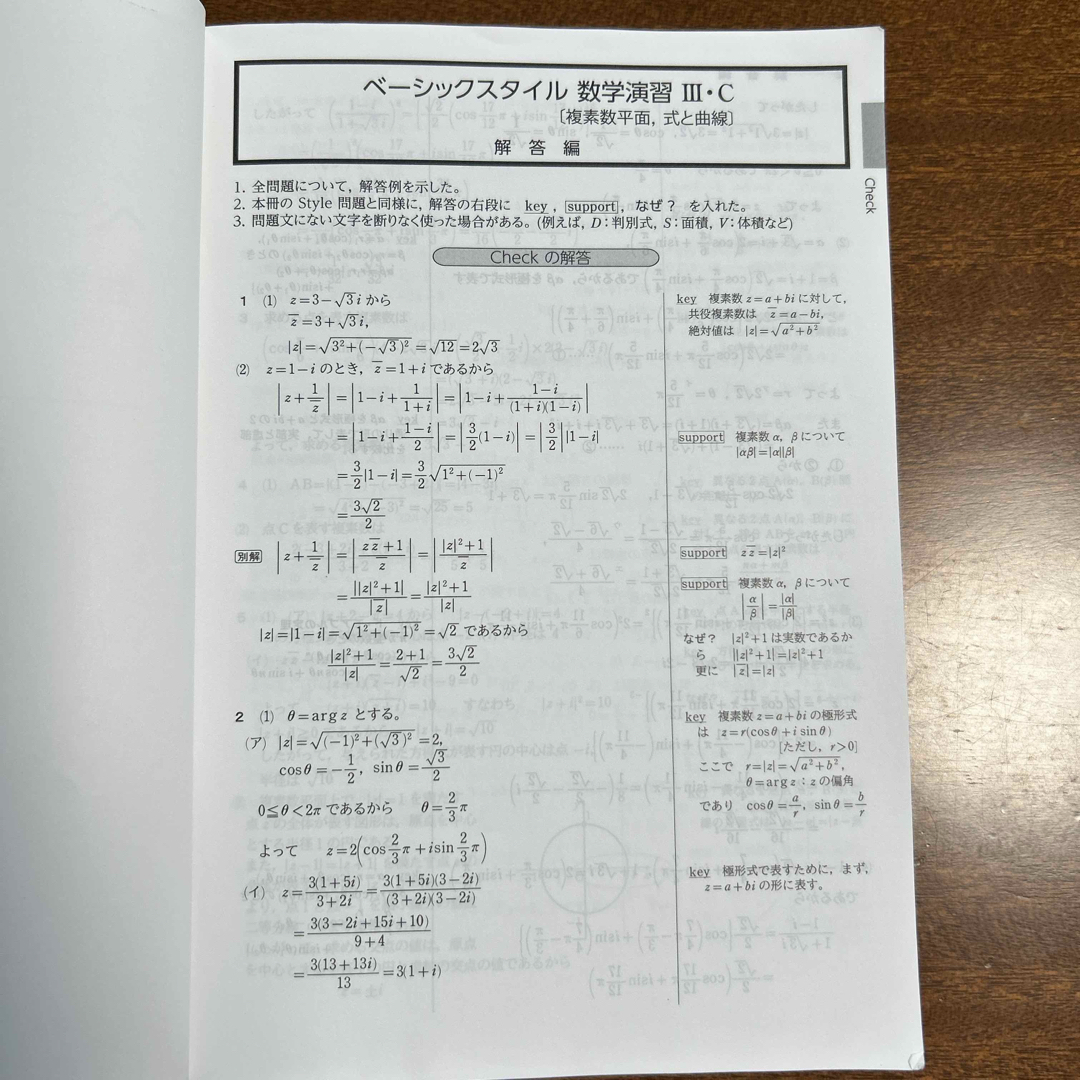 ベーシックスタイル 数学演習 Ⅲ・C
〔複素数平面, 式と曲線〕
解 答 編
Check
1. 全問題について, 解答例を示した。
2. 本冊の Style 問題と同様に, 解答の右段に key , support , なぜ? を入れた。
3. 問題文にない文字を断りなく使った場合がある。(例えば, D:判別式, S:面積, V:体積など)
Check の解答
1 (1) z=3-√3 i から
z̅=3+√3 i,
|z|=√(3²+(-√3)²)=√12=2√3
(2) z=1-i のとき, z̅=1+i であるから
|z+1/z̅|=|1-i+1/(1+i)|=|1-i+(1-i)/((1+i)(1-i))|
=|1-i+(1-i)/2|=|3/2(1-i)|=|3/2||1-i|
=3/2|1-i|=3/2√(1²+(-1)²)
=3√2/2
別解 |z+1/z̅|=|(zz̅+1)/z̅|=|(|z|²+1)/z̅|
=||z|²+1|/|z̅|=(|z|²+1)/|z|
|z|=|1-i|=√(1²+(-1)²)=√2 であるから
(|z|²+1)/|z|=(2+1)/√2=3√2/2
2 (1) θ=arg z とする。
(ア) |z|=√((-1)²+(√3)²)=2,
cosθ=-1/2, sinθ=√3/2
0≦θ<2π であるから θ=2/3π
よって z=2(cos2/3π+isin2/3π)
(イ) z=3(1+5i)/(3+2i)=3(1+5i)(3-2i)/((3+2i)(3-2i))
=3(3-2i+15i+10)/(9+4)
=3(13+13i)/13=3(1+i)
key 複素数 z=a+bi に対して,
共役複素数は z̅=a-bi,
絶対値は |z|=√(a²+b²)
support 複素数 α, β について
|αβ|=|α||β|
support zz̅=|z|²
support 複素数 α, β について
|α/β|=|α|/|β|
なぜ? |z|²+1 は実数であるか
ら ||z|²+1|=|z|²+1
更に |z̅|=|z|
key 複素数 z=a+bi の極形式
は z=r(cosθ+i sinθ)
[ただし, r>0]
ここで r=|z|=√(a²+b²),
θ=arg z:z の偏角
であり cosθ=a/r, sinθ=b/r
key 極形式で表すために, まず,
z=a+bi の形に表す。